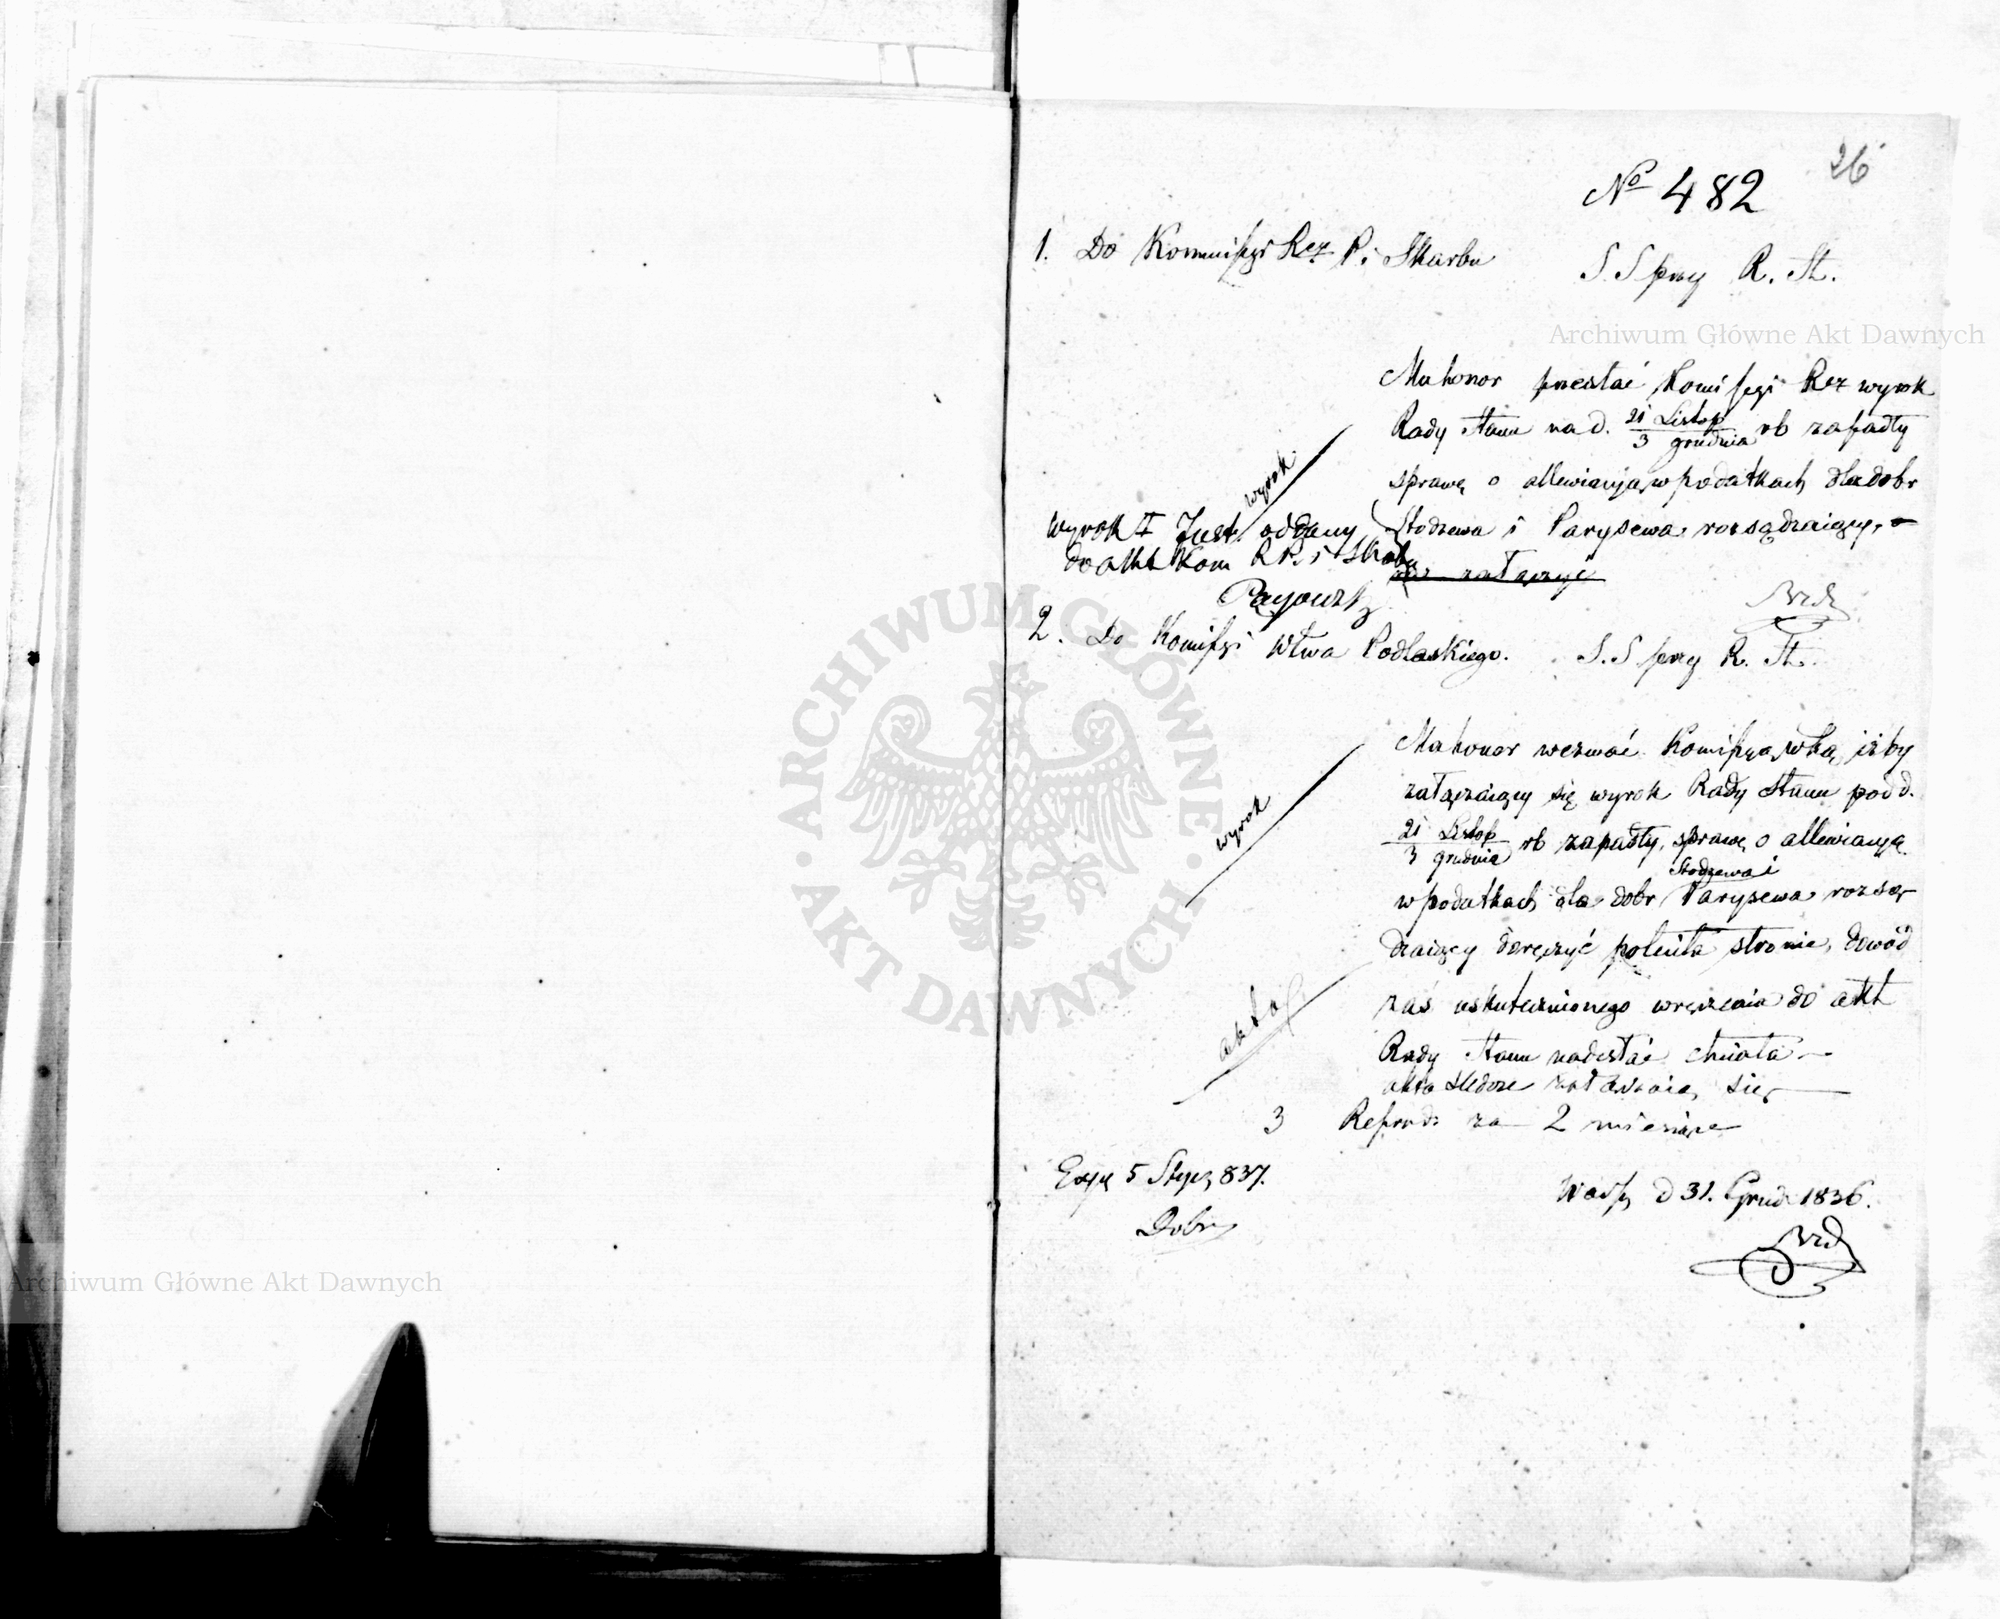 26
No 482
1. Do Kommissyi Rez P. i Skarbu
S. S przy R. St.
Archiwum Główne Akt Dawnych
Ma honor przesłać Komissyi Rez wyrok
Rady Stanu na d. 21 Listop / 3 grudnia rb zapadły
sprawę o allewiacyą w podatkach dla dobr
Stodzewa i Parysewa rozsądzaiący,
załączyć
wyrok
wyrok I Just oddany
do akt Kom R P. i Skarbu
2. Do Komissyi Wtwa Podlaskiego.
S. S przy R. St.
Ma honor wezwać Komissyą wtką, iżby
załączaiący się wyrok Rady Stanu pod d.
21 Listop / 3 grudnia rb zapadły, sprawę o allewiacyą
Stodzewa i
w podatkach dla dobr Parysewa rozsą-
dzaiący doręczyć poleciła stronie, dowód
zaś uskutecznionego wręczenia do akt
Rady Stanu nadesłać chciała
akta śledcze załączaią się
wyrok
akta
3 Reprod: za 2 miesiące
Exp 5 Stycz 837.
Dobr
Warsz d 31. Grud 1836.
ARCHIWUM GŁÓWNE AKT DAWNYCH
Archiwum Główne Akt Dawnych